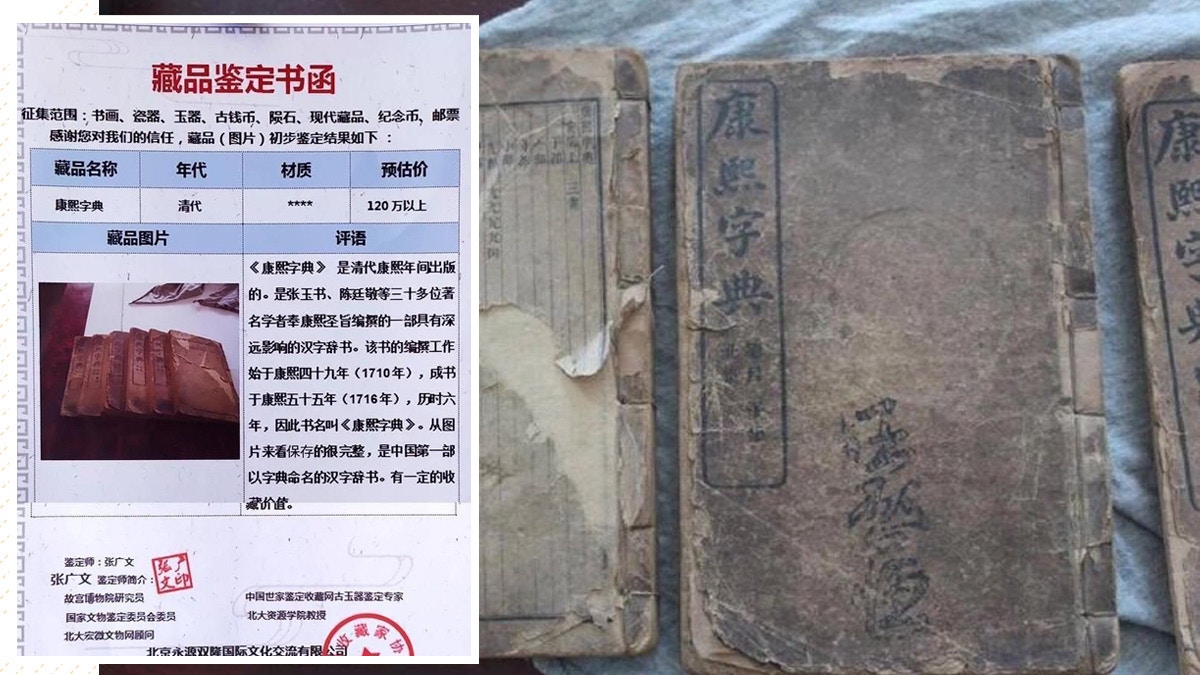 藏品鉴定书函
征集范围：书画、瓷器、玉器、古钱币、陨石、现代藏品、纪念币、邮票
感谢您对我们的信任，藏品（图片）初步鉴定结果如下：
藏品名称 年代 材质 预估价
康熙字典 清代 **** 120万以上
藏品图片 评语
《康熙字典》 是清代康熙年间出版
的。是张玉书、陈廷敬等三十多位著
名学者奉康熙圣旨编撰的一部具有深
远影响的汉字辞书。该书的编撰工作
始于康熙四十九年（1710年），成书
于康熙五十五年（1716年），历时六
年，因此书名叫《康熙字典》。从图
片来看保存的很完整，是中国第一部
以字典命名的汉字辞书。有一定的收
藏价值。
鉴定师：张广文
张广文 鉴定师简介：
张广文印
故宫博物院研究员
国家文物鉴定委员会委员
北大宏微文物网顾问
中国世家鉴定收藏网古玉器鉴定专家
北大资源学院教授
北京永源双隆国际文化交流有限公司
收藏家协
康熙字典
康熙字典